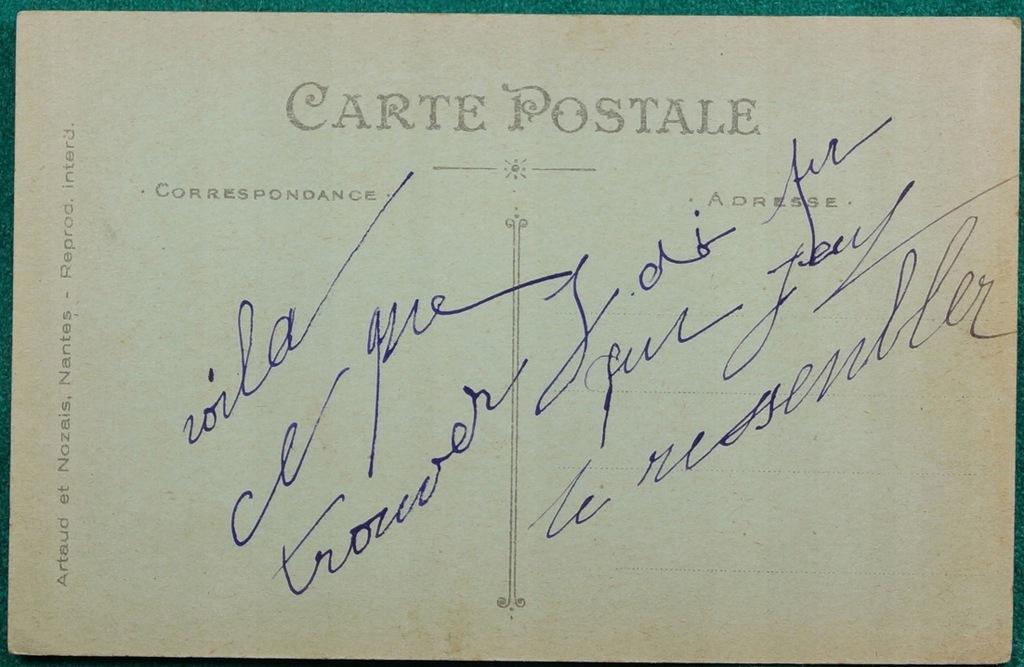 CARTE POSTALE
CORRESPONDANCE
ADRESSE
Artaud et Nozais, Nantes - Reprod. interd.
voilà
ce que J. di
trouver pur
le ressenbller